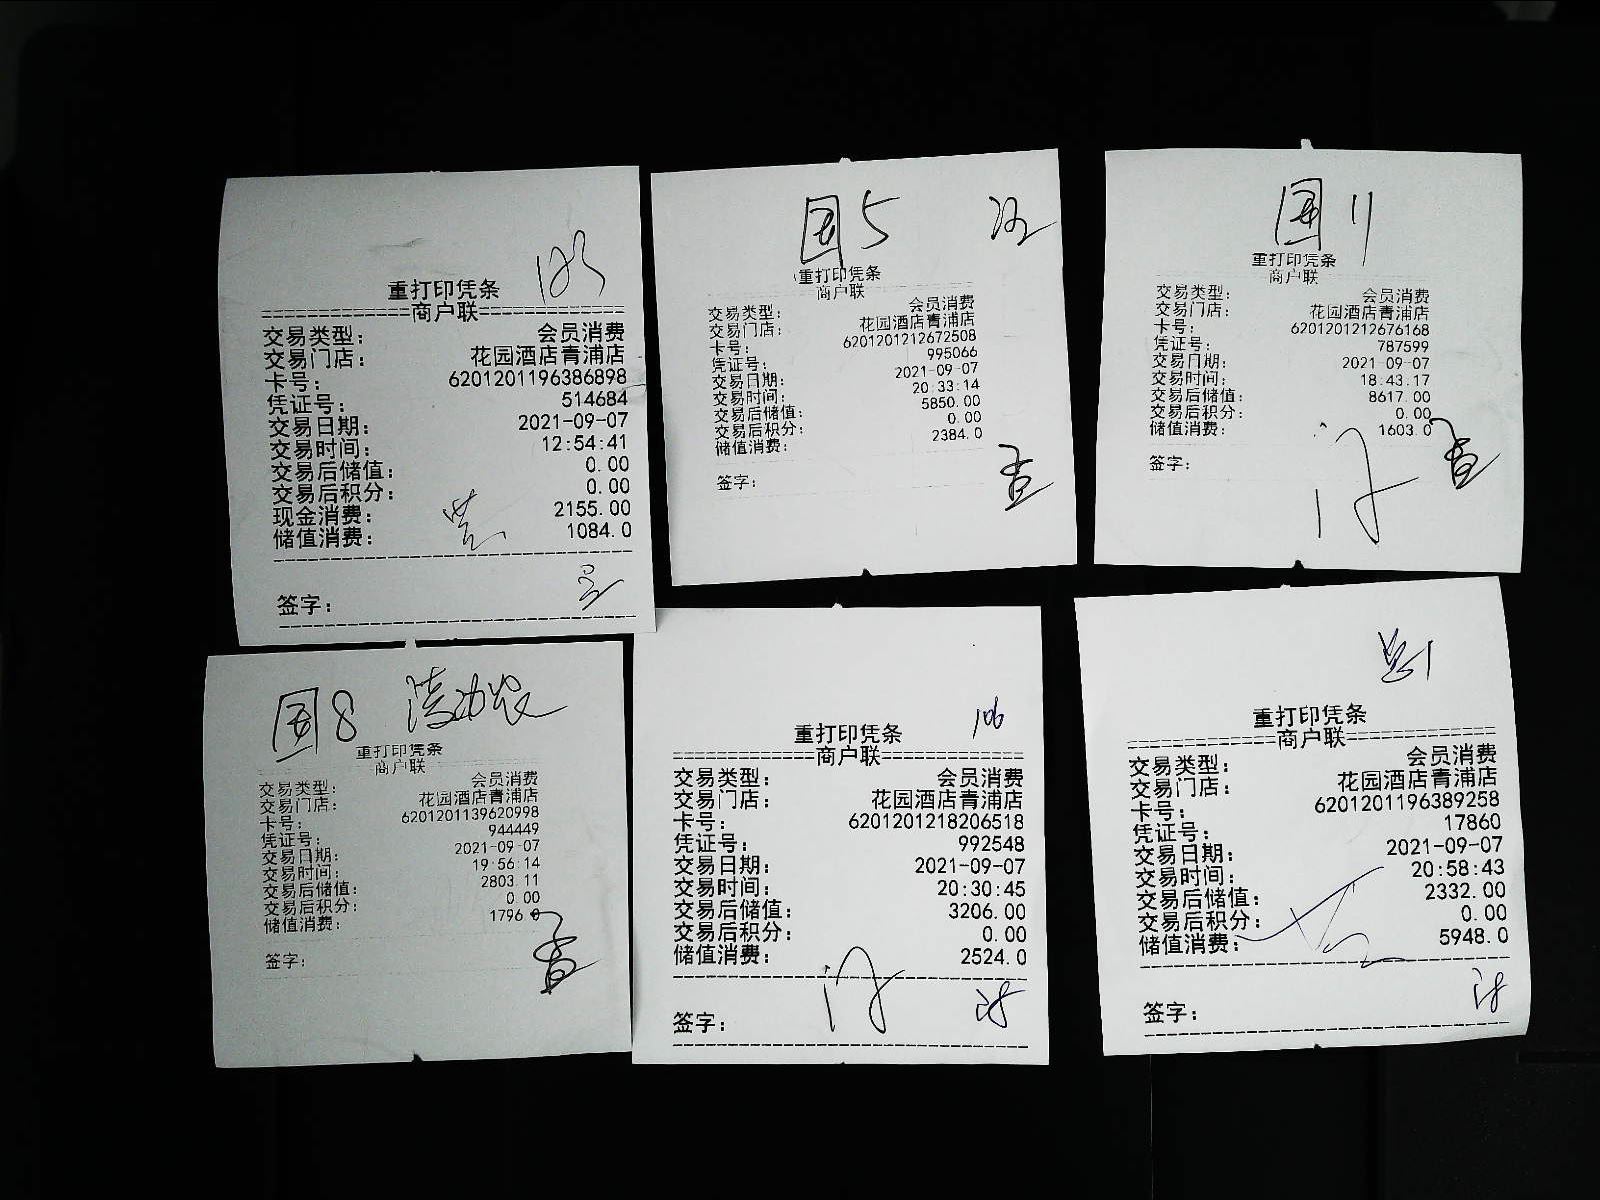 123
重打印凭条
==============商户联==============
交易类型： 会员消费
交易门店： 花园酒店青浦店
卡号： 6201201196386898
凭证号： 514684
交易日期： 2021-09-07
交易时间： 12:54:41
交易后储值： 0.00
交易后积分： 0.00
现金消费： 2155.00
储值消费： 1084.0
签字：
国5
重打印凭条
商户联
交易类型： 会员消费
交易门店： 花园酒店青浦店
卡号： 6201201212672508
凭证号： 995066
交易日期： 2021-09-07
交易时间： 20:33:14
交易后储值： 5850.00
交易后积分： 0.00
储值消费： 2384.0
签字：
国11
重打印凭条
商户联
交易类型： 会员消费
交易门店： 花园酒店青浦店
卡号： 6201201212676168
凭证号： 787599
交易日期： 2021-09-07
交易时间： 18:43:17
交易后储值： 8617.00
交易后积分： 0.00
储值消费： 1603.0
签字：
国8
重打印凭条
商户联
交易类型： 会员消费
交易门店： 花园酒店青浦店
卡号： 6201201139620998
凭证号： 944449
交易日期： 2021-09-07
交易时间： 19:56:14
交易后储值： 2803.11
交易后积分： 0.00
储值消费： 1796.0
签字：
106
重打印凭条
==============商户联==============
交易类型： 会员消费
交易门店： 花园酒店青浦店
卡号： 6201201218206518
凭证号： 992548
交易日期： 2021-09-07
交易时间： 20:30:45
交易后储值： 3206.00
交易后积分： 0.00
储值消费： 2524.0
签字：
重打印凭条
==============商户联==============
交易类型： 会员消费
交易门店： 花园酒店青浦店
卡号： 6201201196389258
凭证号： 17860
交易日期： 2021-09-07
交易时间： 20:58:43
交易后储值： 2332.00
交易后积分： 0.00
储值消费： 5948.0
签字：